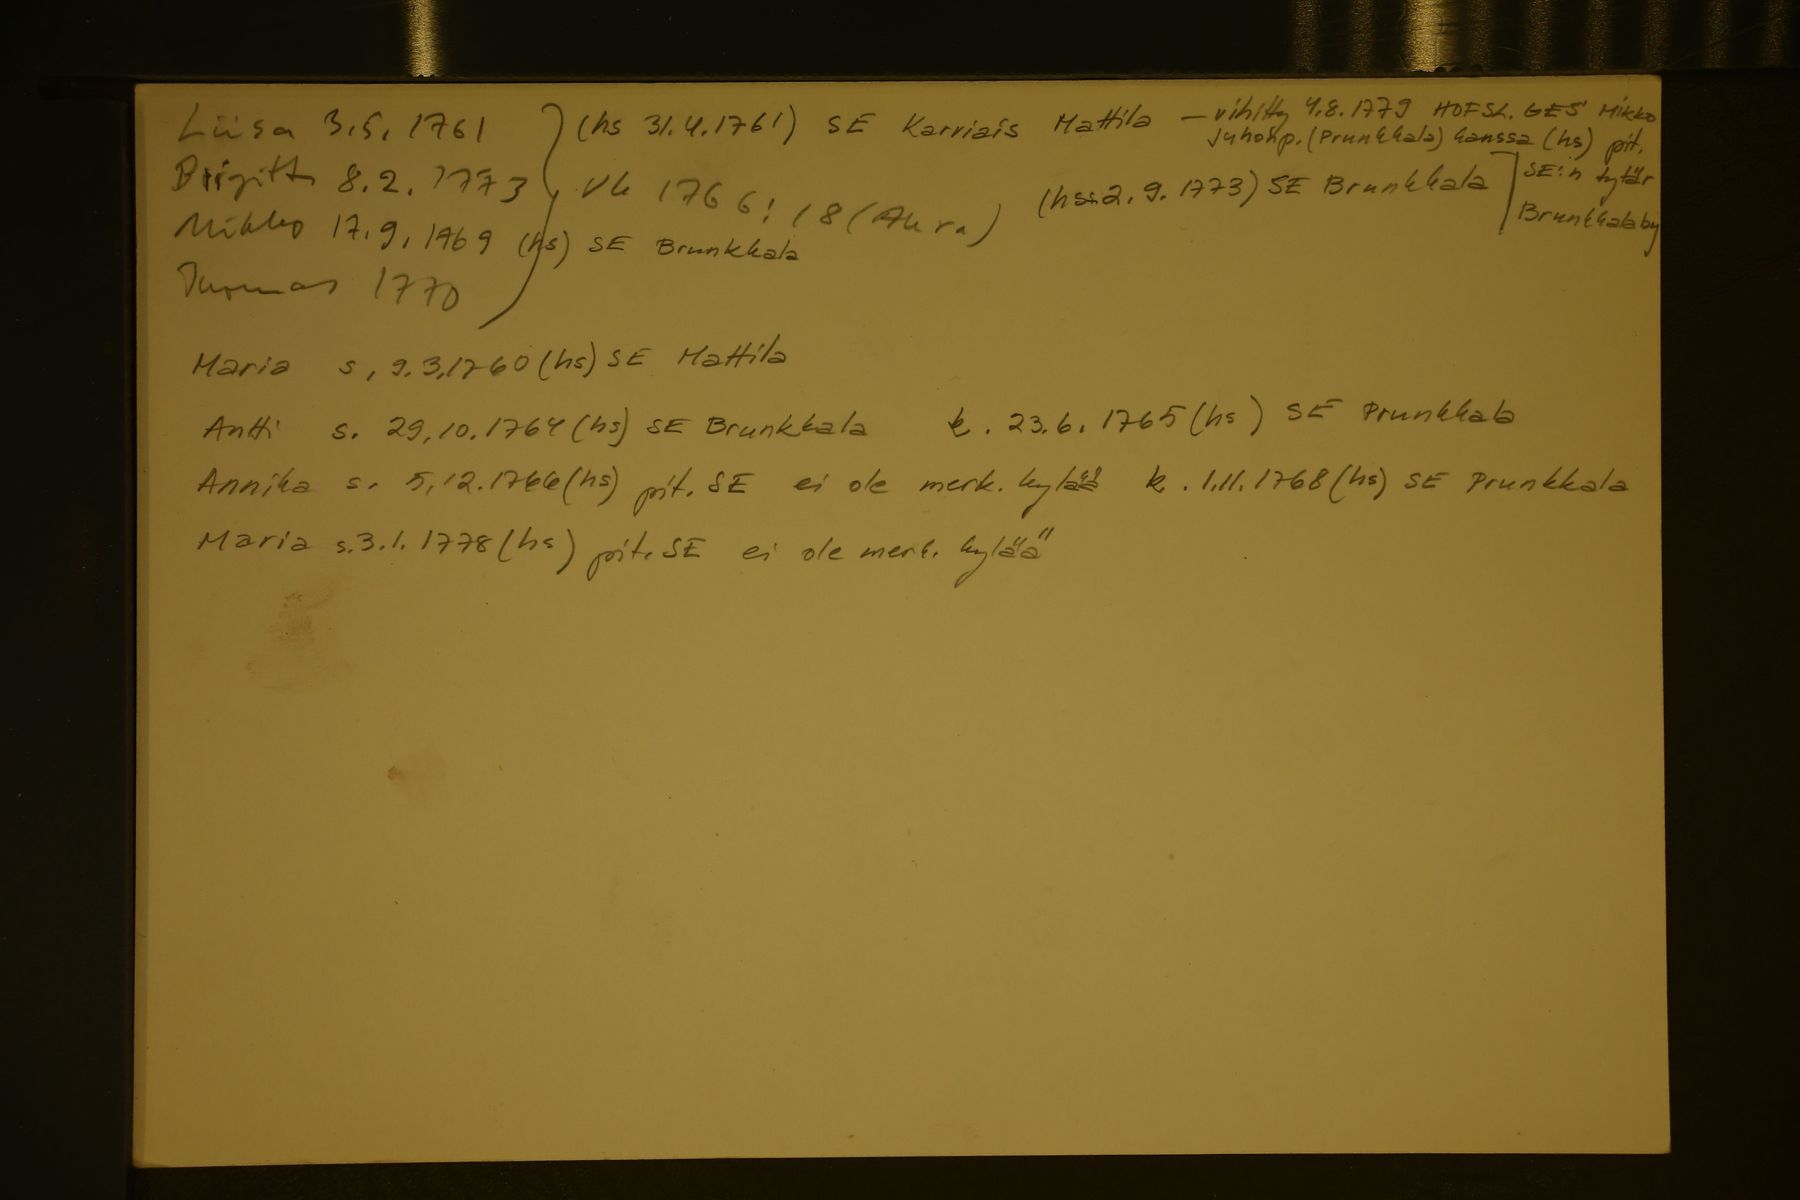 Liisa 3.5.1761 (hs 31.4.1761) SE Karviais Mattila — vihitty 4.8.1779 HOFSL. GES Mikko
Juhonp. (Prunkkala) kanssa (hs) pit.
SE:n tytär
Brunkkalaby
Birgitta 8.2.1773 vk 1766: 18 (Aura) (hs: 2.9.1773) SE Brunkkala
Mikko 17.9.1769 (hs) SE Brunkkala
Tuomas 1770
Maria s. 9.3.1760 (hs) SE Mattila
Antti s. 29.10.1764 (hs) SE Brunkkala k. 23.6.1765 (hs) SE Prunkkala
Annika s. 5.12.1766 (hs) pit. SE ei ole merk. kylää k. 1.11.1768 (hs) SE Prunkkala
Maria s. 3.1.1778 (hs) pit. SE ei ole merk. kylää